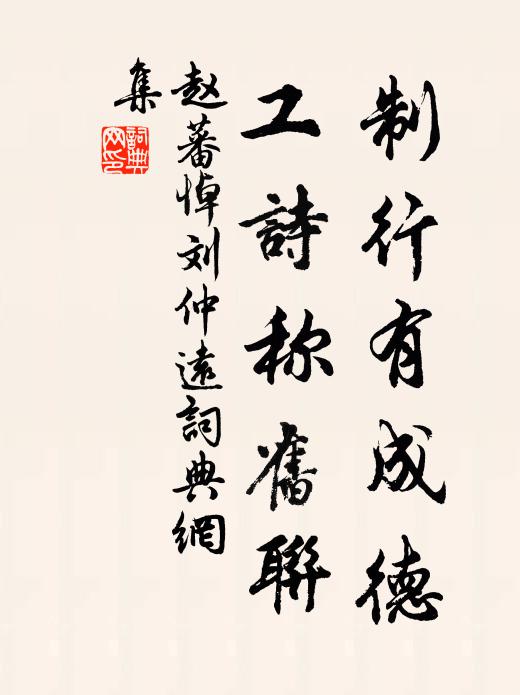 制行有成德
工詩称舊聯
赵蕃悼刘仲遠詞典網
集
詞典網印